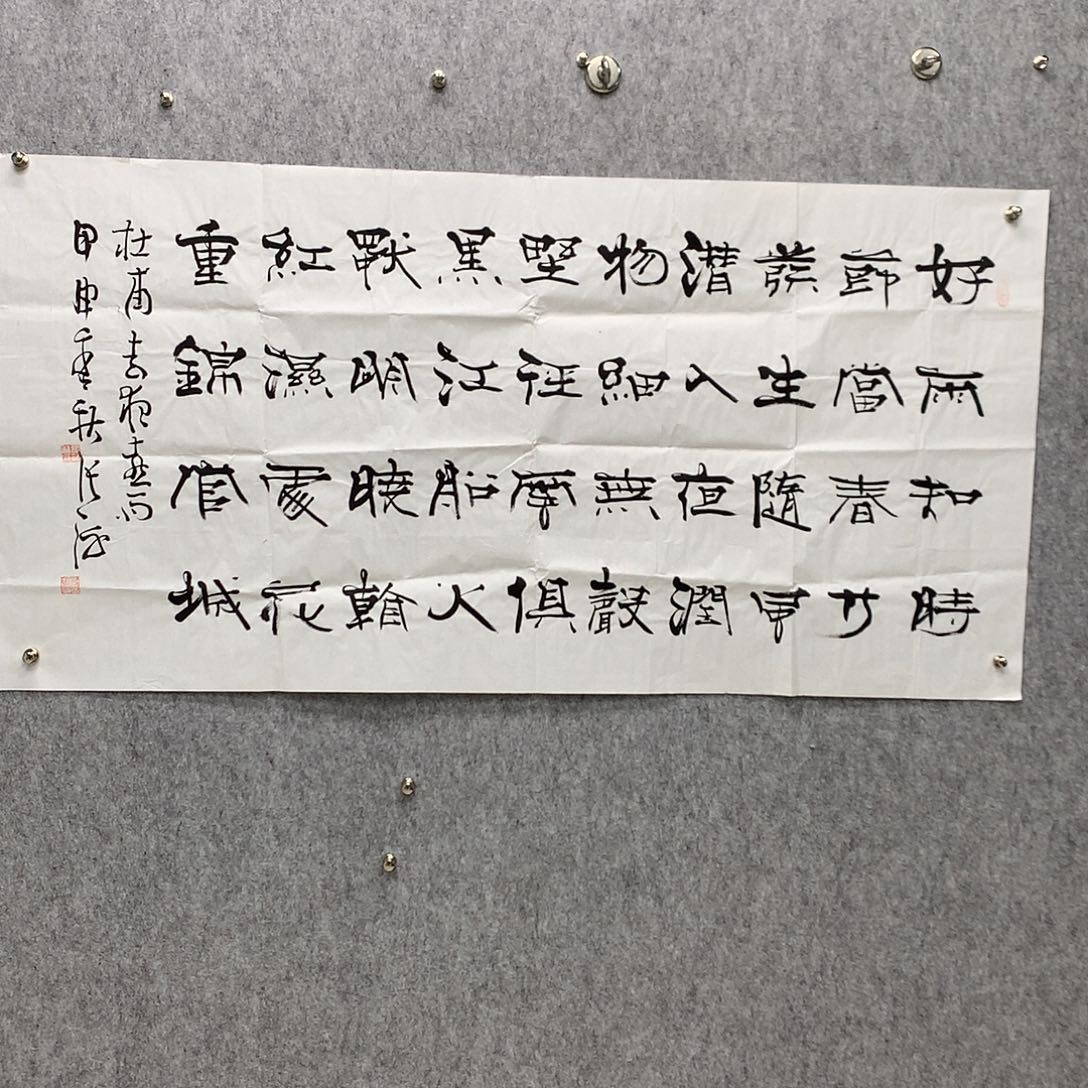 好雨知時
節當春乃
發生隨風
潛入夜潤
物細無聲
野徑雲俱
黑江船火
獨明曉看
紅濕處花
重錦官城
杜甫春夜喜雨
甲申秋